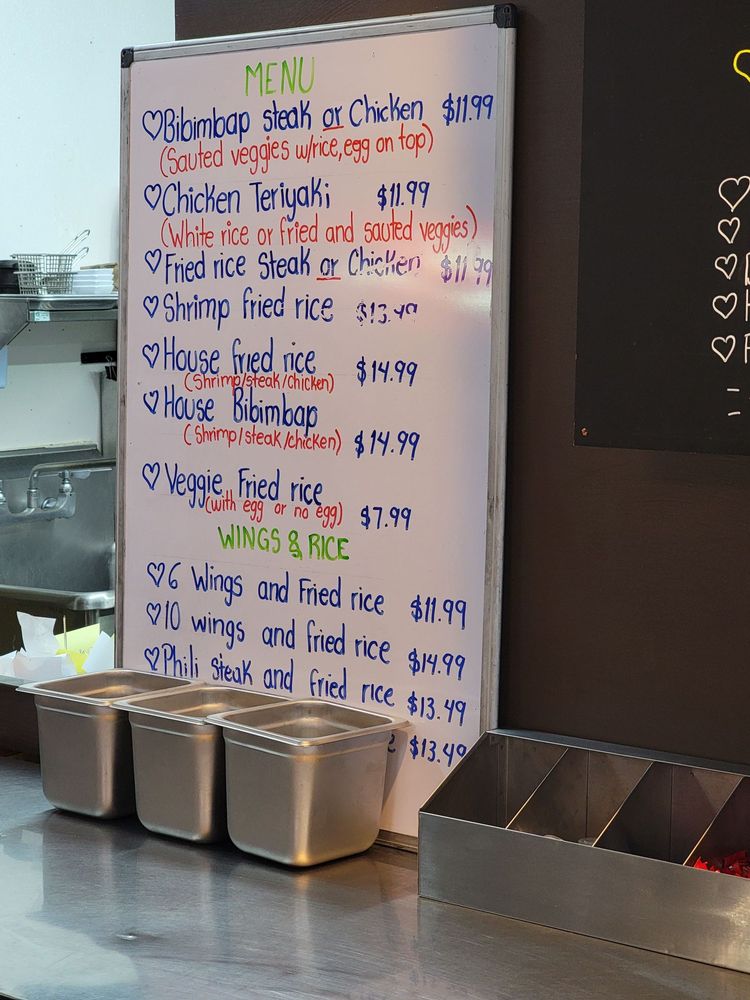 MENU
♡Bibimbap steak or Chicken $11.99
(Sauted veggies w/rice, egg on top)
♡Chicken Teriyaki $11.99
(White rice or fried and sauted veggies)
♡Fried rice Steak or Chicken $11.99
♡Shrimp fried rice $13.49
♡House fried rice
(Shrimp/steak/chicken) $14.99
♡House Bibimbap
(Shrimp/steak/chicken) $14.99
♡Veggie Fried rice
(with egg or no egg) $7.99
WINGS & RICE
♡6 Wings and Fried rice $11.99
♡10 wings and fried rice $14.99
♡Phili steak and fried rice $13.49
$13.49